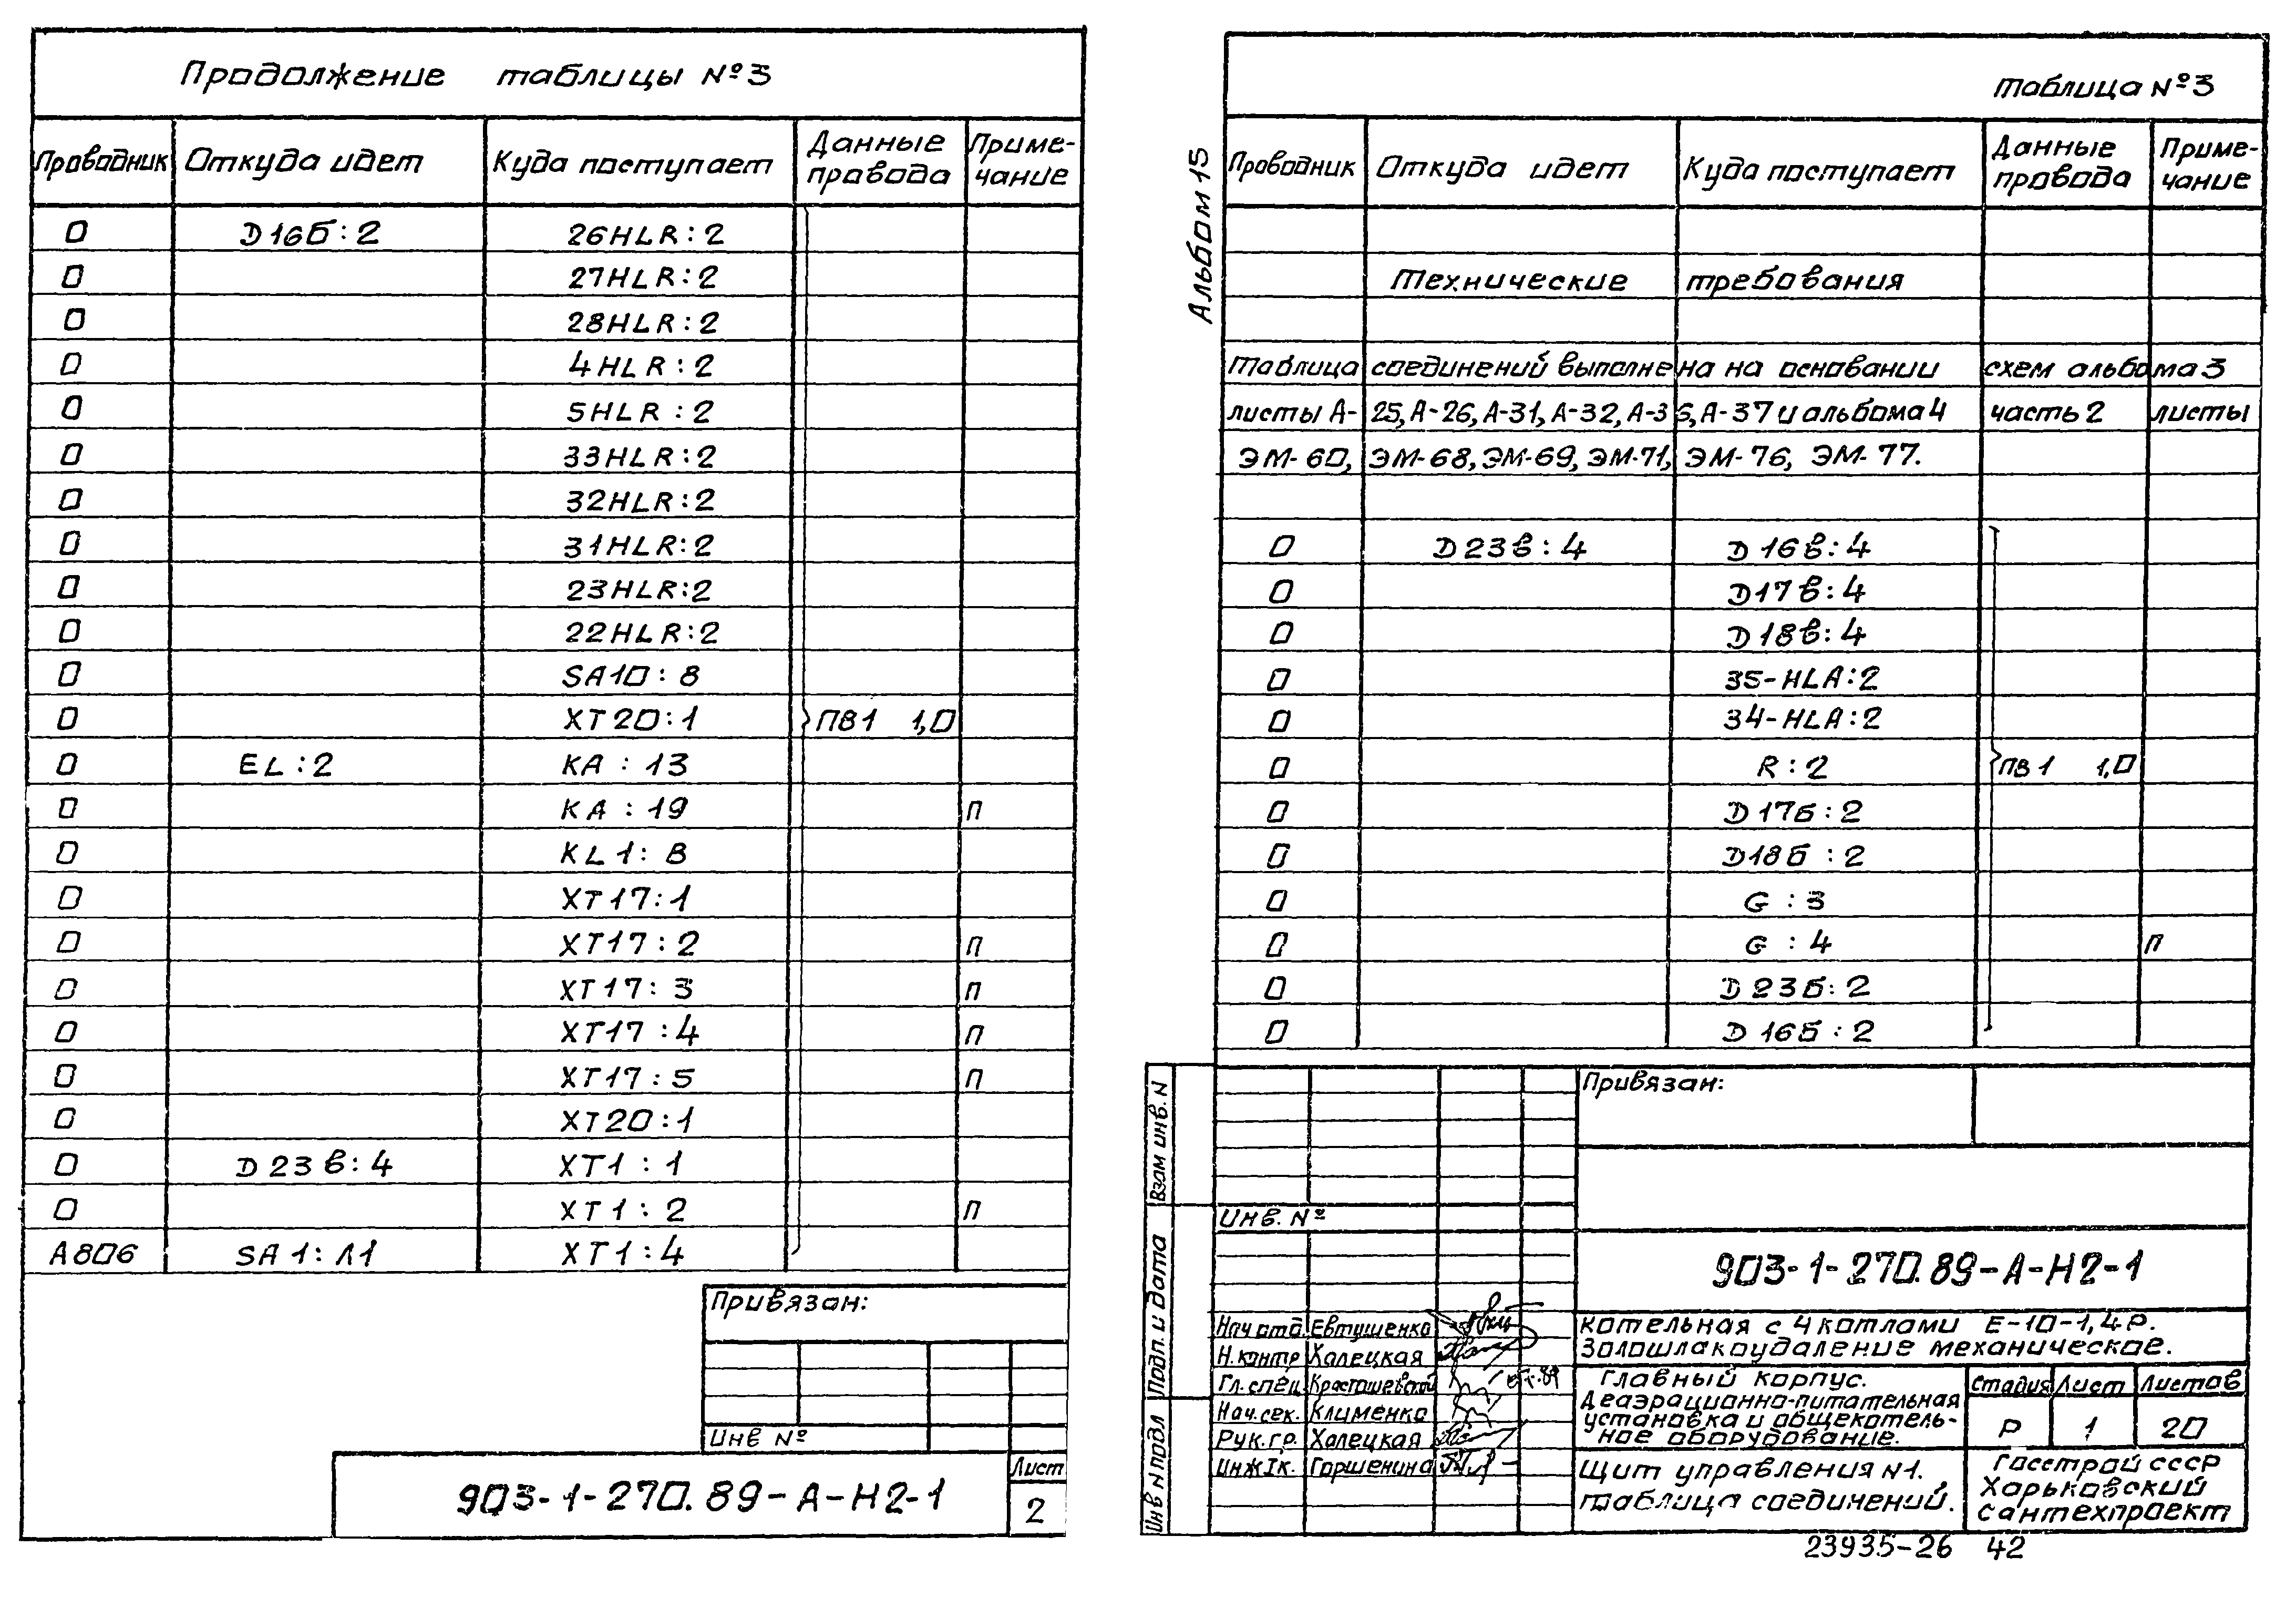 Продолжение таблицы №3
Проводник Откуда идет Куда поступает Данные провода Примечание
0 D16б:2 26HLR:2
0 27HLR:2
0 28HLR:2
0 4HLR:2
0 5HLR:2
0 33HLR:2
0 32HLR:2
0 31HLR:2
0 23HLR:2
0 22HLR:2
0 SA10:8
0 XT20:1 ПВ1 1,0
0 EL:2 KA:13
0 KA:19 П
0 KL1:8
0 XT17:1
0 XT17:2 П
0 XT17:3 П
0 XT17:4 П
0 XT17:5 П
0 XT20:1
0 D23в:4 XT1:1
0 XT1:2 П
А806 SA1:Л1 XT1:4
Привязан:
Инв №
903-1-270.89-А-Н2-1
Лист
2
Альбом 15
Таблица №3
Проводник Откуда идет Куда поступает Данные провода Примечание
Технические требования
Таблица соединений выполнена на основании схем альбома 3
листы А-25, А-26, А-31, А-32, А-36, А-37 и альбома 4 часть 2 листы
ЭМ-60, ЭМ-68, ЭМ-69, ЭМ-71, ЭМ-76, ЭМ-77.
0 D23в:4 D16в:4
0 D17в:4
0 D18в:4
0 35-HLA:2
0 34-HLA:2
0 R:2 ПВ1 1,0
0 D17б:2
0 D18б:2
0 G:3
0 G:4 П
0 D23б:2
0 D16б:2
Взам инв. N
Подп. и дата
Инв N подл
Привязан:
Инв. №
903-1-270.89-А-Н2-1
Нач отд. Евтушенко
Н. контр Халецкая
Гл. спец.
Нач. сек. Клименко
Рук. гр. Халецкая
Инж Iк. Горшенина
Котельная с 4 котлами Е-10-1,4Р.
Золошлакоудаление механическое.
Главный корпус.
Деаэрационно-питательная
установка и общекотель-
ное оборудование.
Стадия Лист Листов
Р 1 20
Щит управления N1.
Таблица соединений.
Госстрой СССР
Харьковский
Сантехпроект
23935-26 42